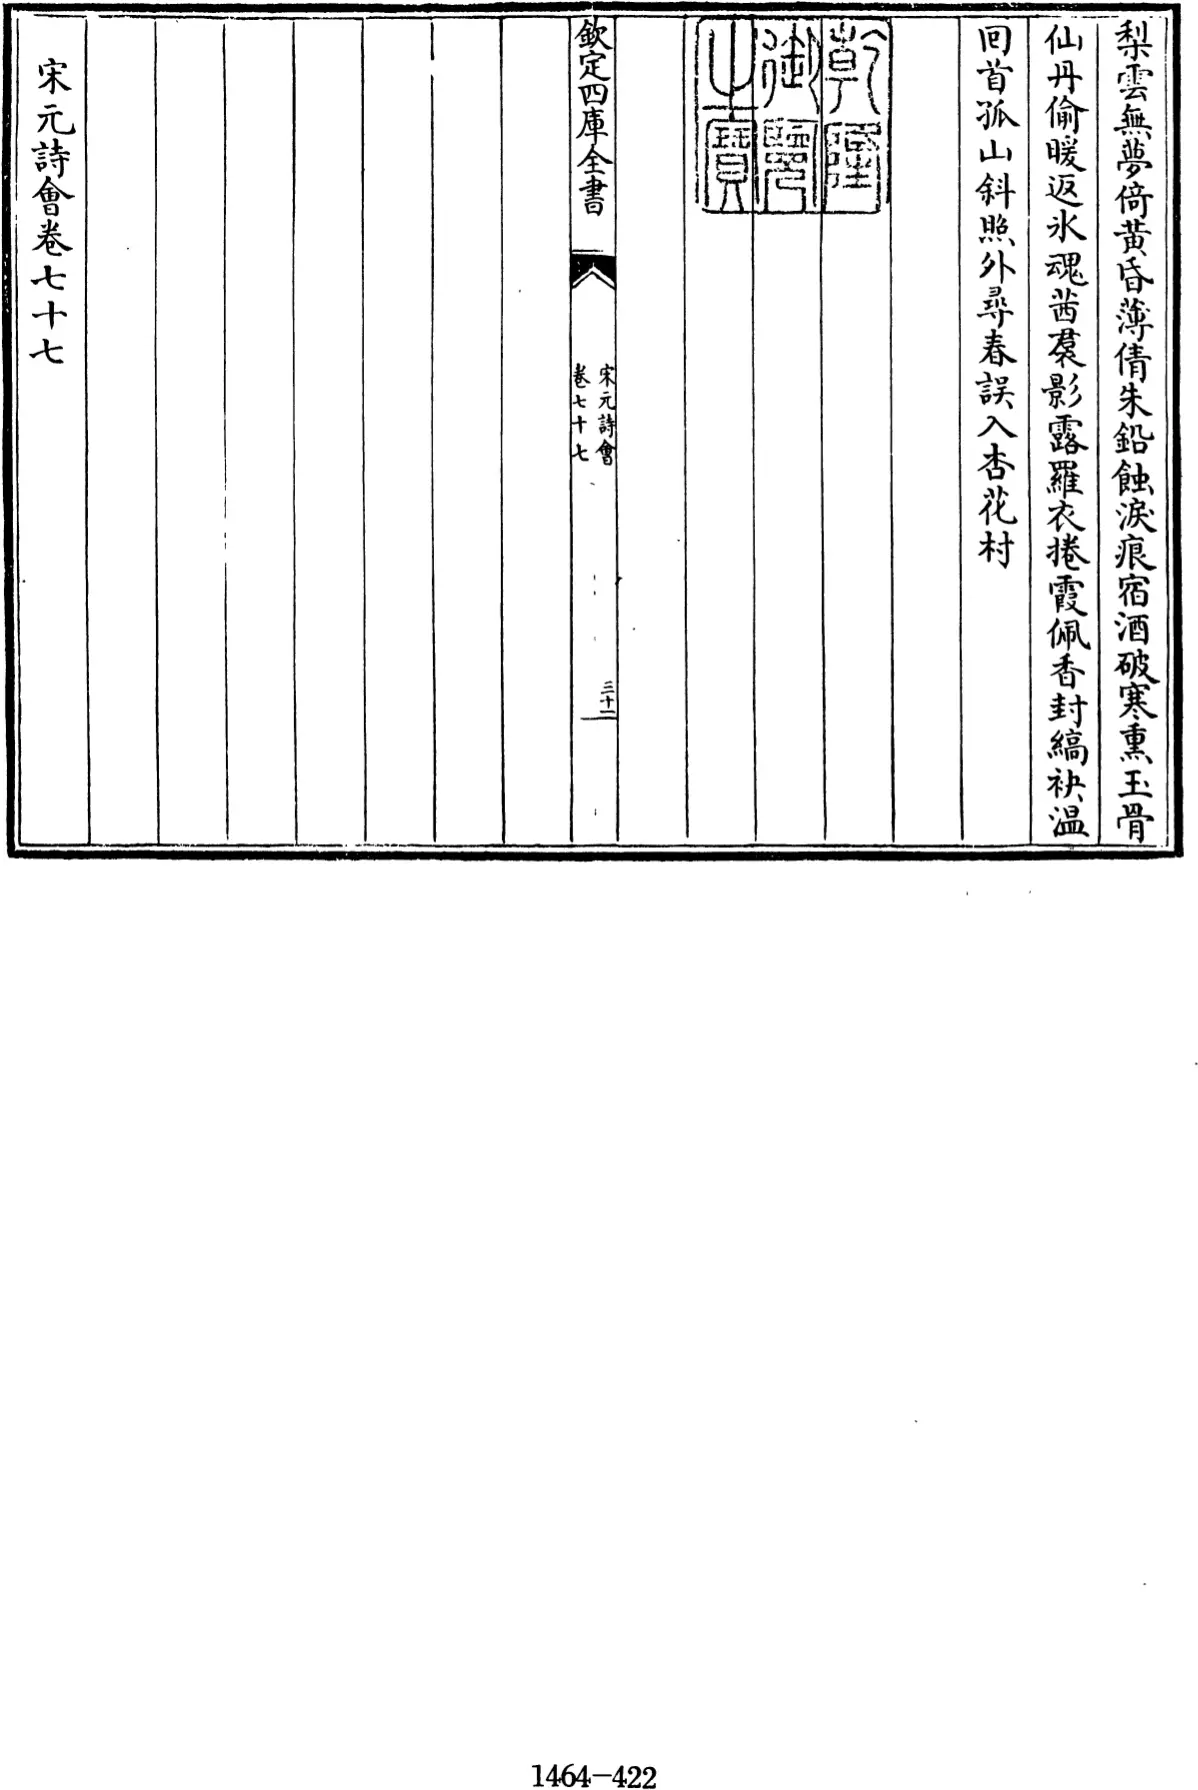 梨雲無夢倚黄昏薄倩朱鉛蝕淚痕宿酒破寒熏玉骨
仙丹偷暖返氷魂茜裠影露羅衣捲霞佩香封縞袂温
回首孤山斜照外尋春誤入杏花村
乾隆
御覽
之寶
欽定四庫全書
宋元詩會
卷七十七
三十一
宋元詩會卷七十七
1464-422